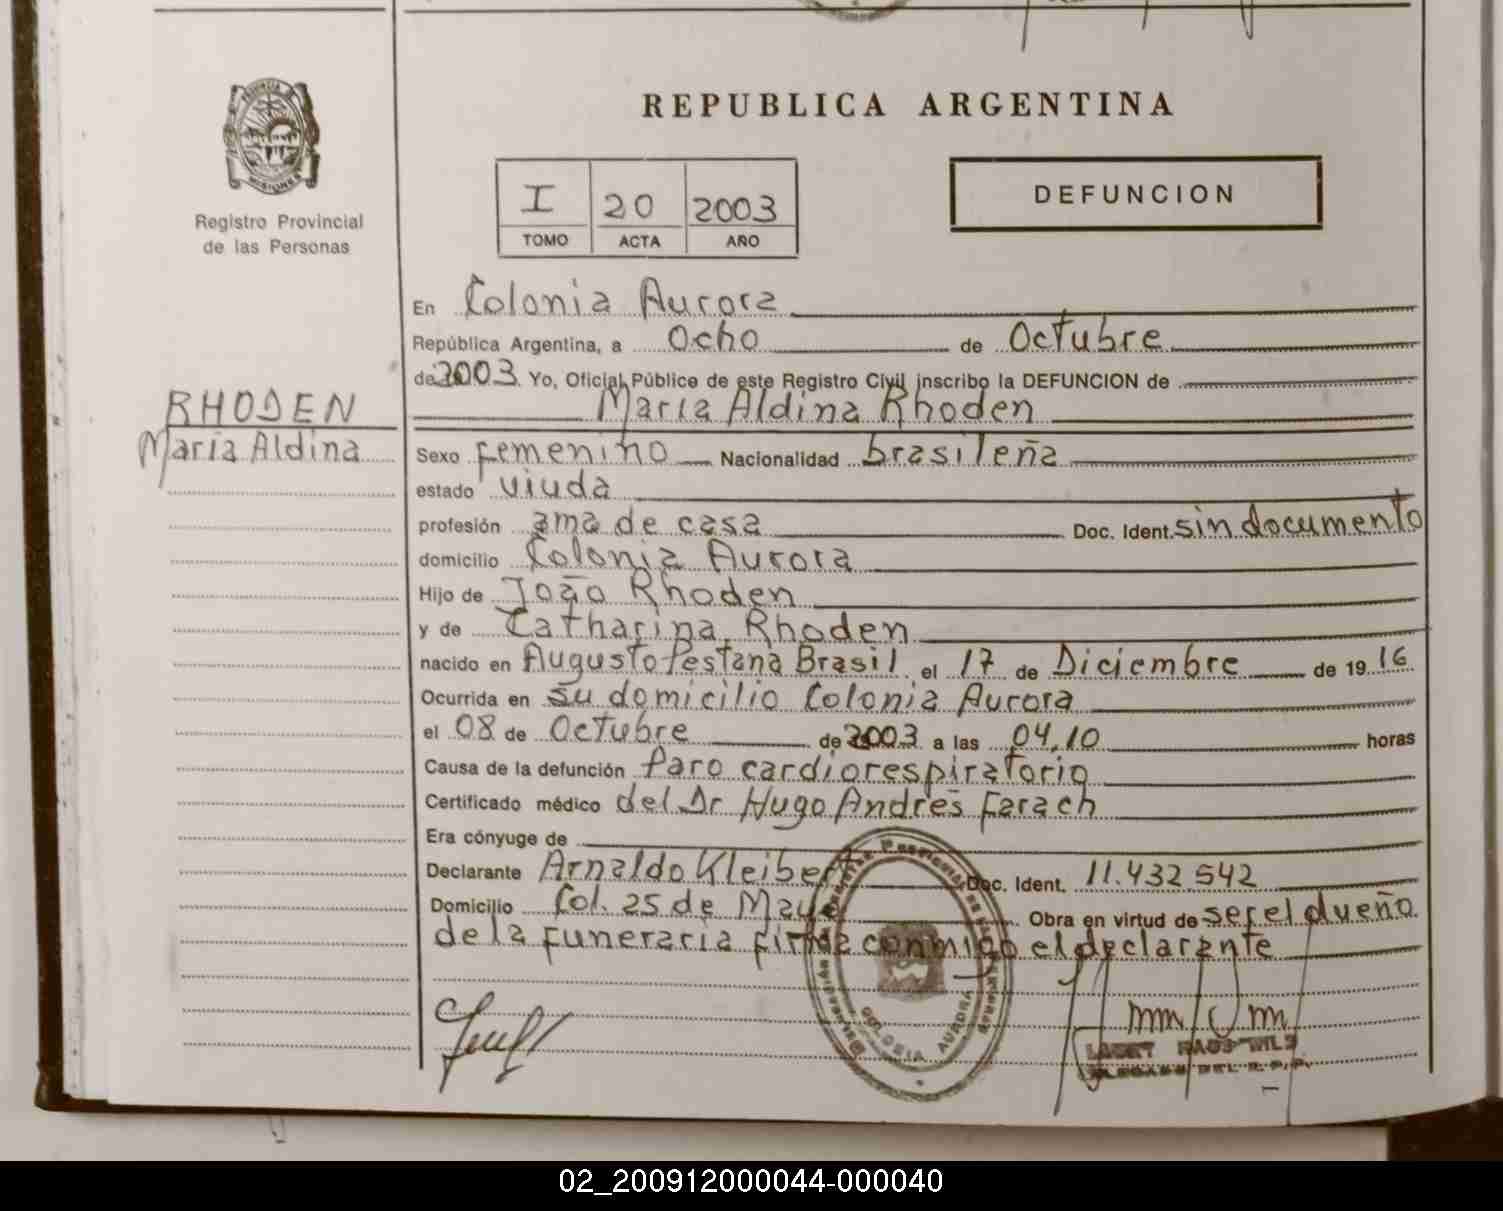 REPUBLICA ARGENTINA
MISIONES
Registro Provincial
de las Personas
I 20 2003
TOMO ACTA AÑO
DEFUNCION
En Colonia Aurora
República Argentina, a Ocho de Octubre
de 2003. Yo, Oficial Público de este Registro Civil inscribo la DEFUNCION de
Maria Aldina Rhoden
RHODEN
Maria Aldina
Sexo femenino Nacionalidad brasileña
estado viuda
profesión ama de casa Doc. Ident. sin documento
domicilio Colonia Aurora
Hijo de João Rhoden
y de Catharina Rhoden
nacido en Augusto Pestana Brasil el 17 de Diciembre de 1916
Ocurrida en su domicilio Colonia Aurora
el 08 de Octubre de 2003 a las 04,10 horas
Causa de la defunción Paro cardiorespiratorio
Certificado médico del Dr Hugo Andres Farach
Era cónyuge de
Declarante Arnaldo Kleibert Doc. Ident. 11.432 542
Domicilio Col. 25 de Mayo Obra en virtud de ser el dueño
de la funeraria firma conmigo el declarante
COLONIA AURORA
02_200912000044-000040